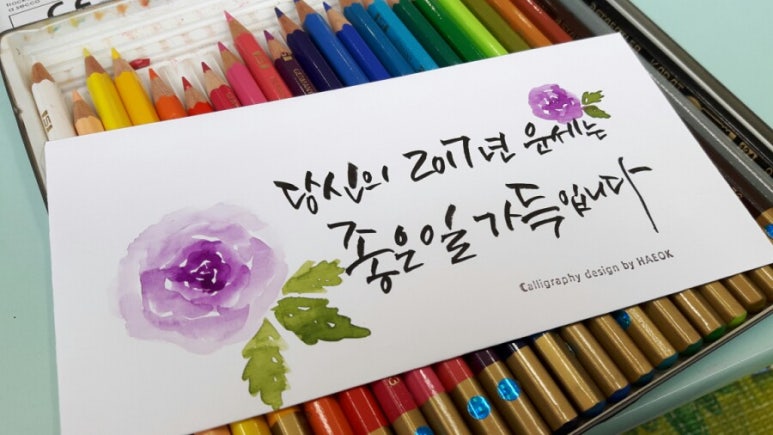 당신의 2017년 운세는
좋은일 가득입니다
Calligraphy design by HAEOK